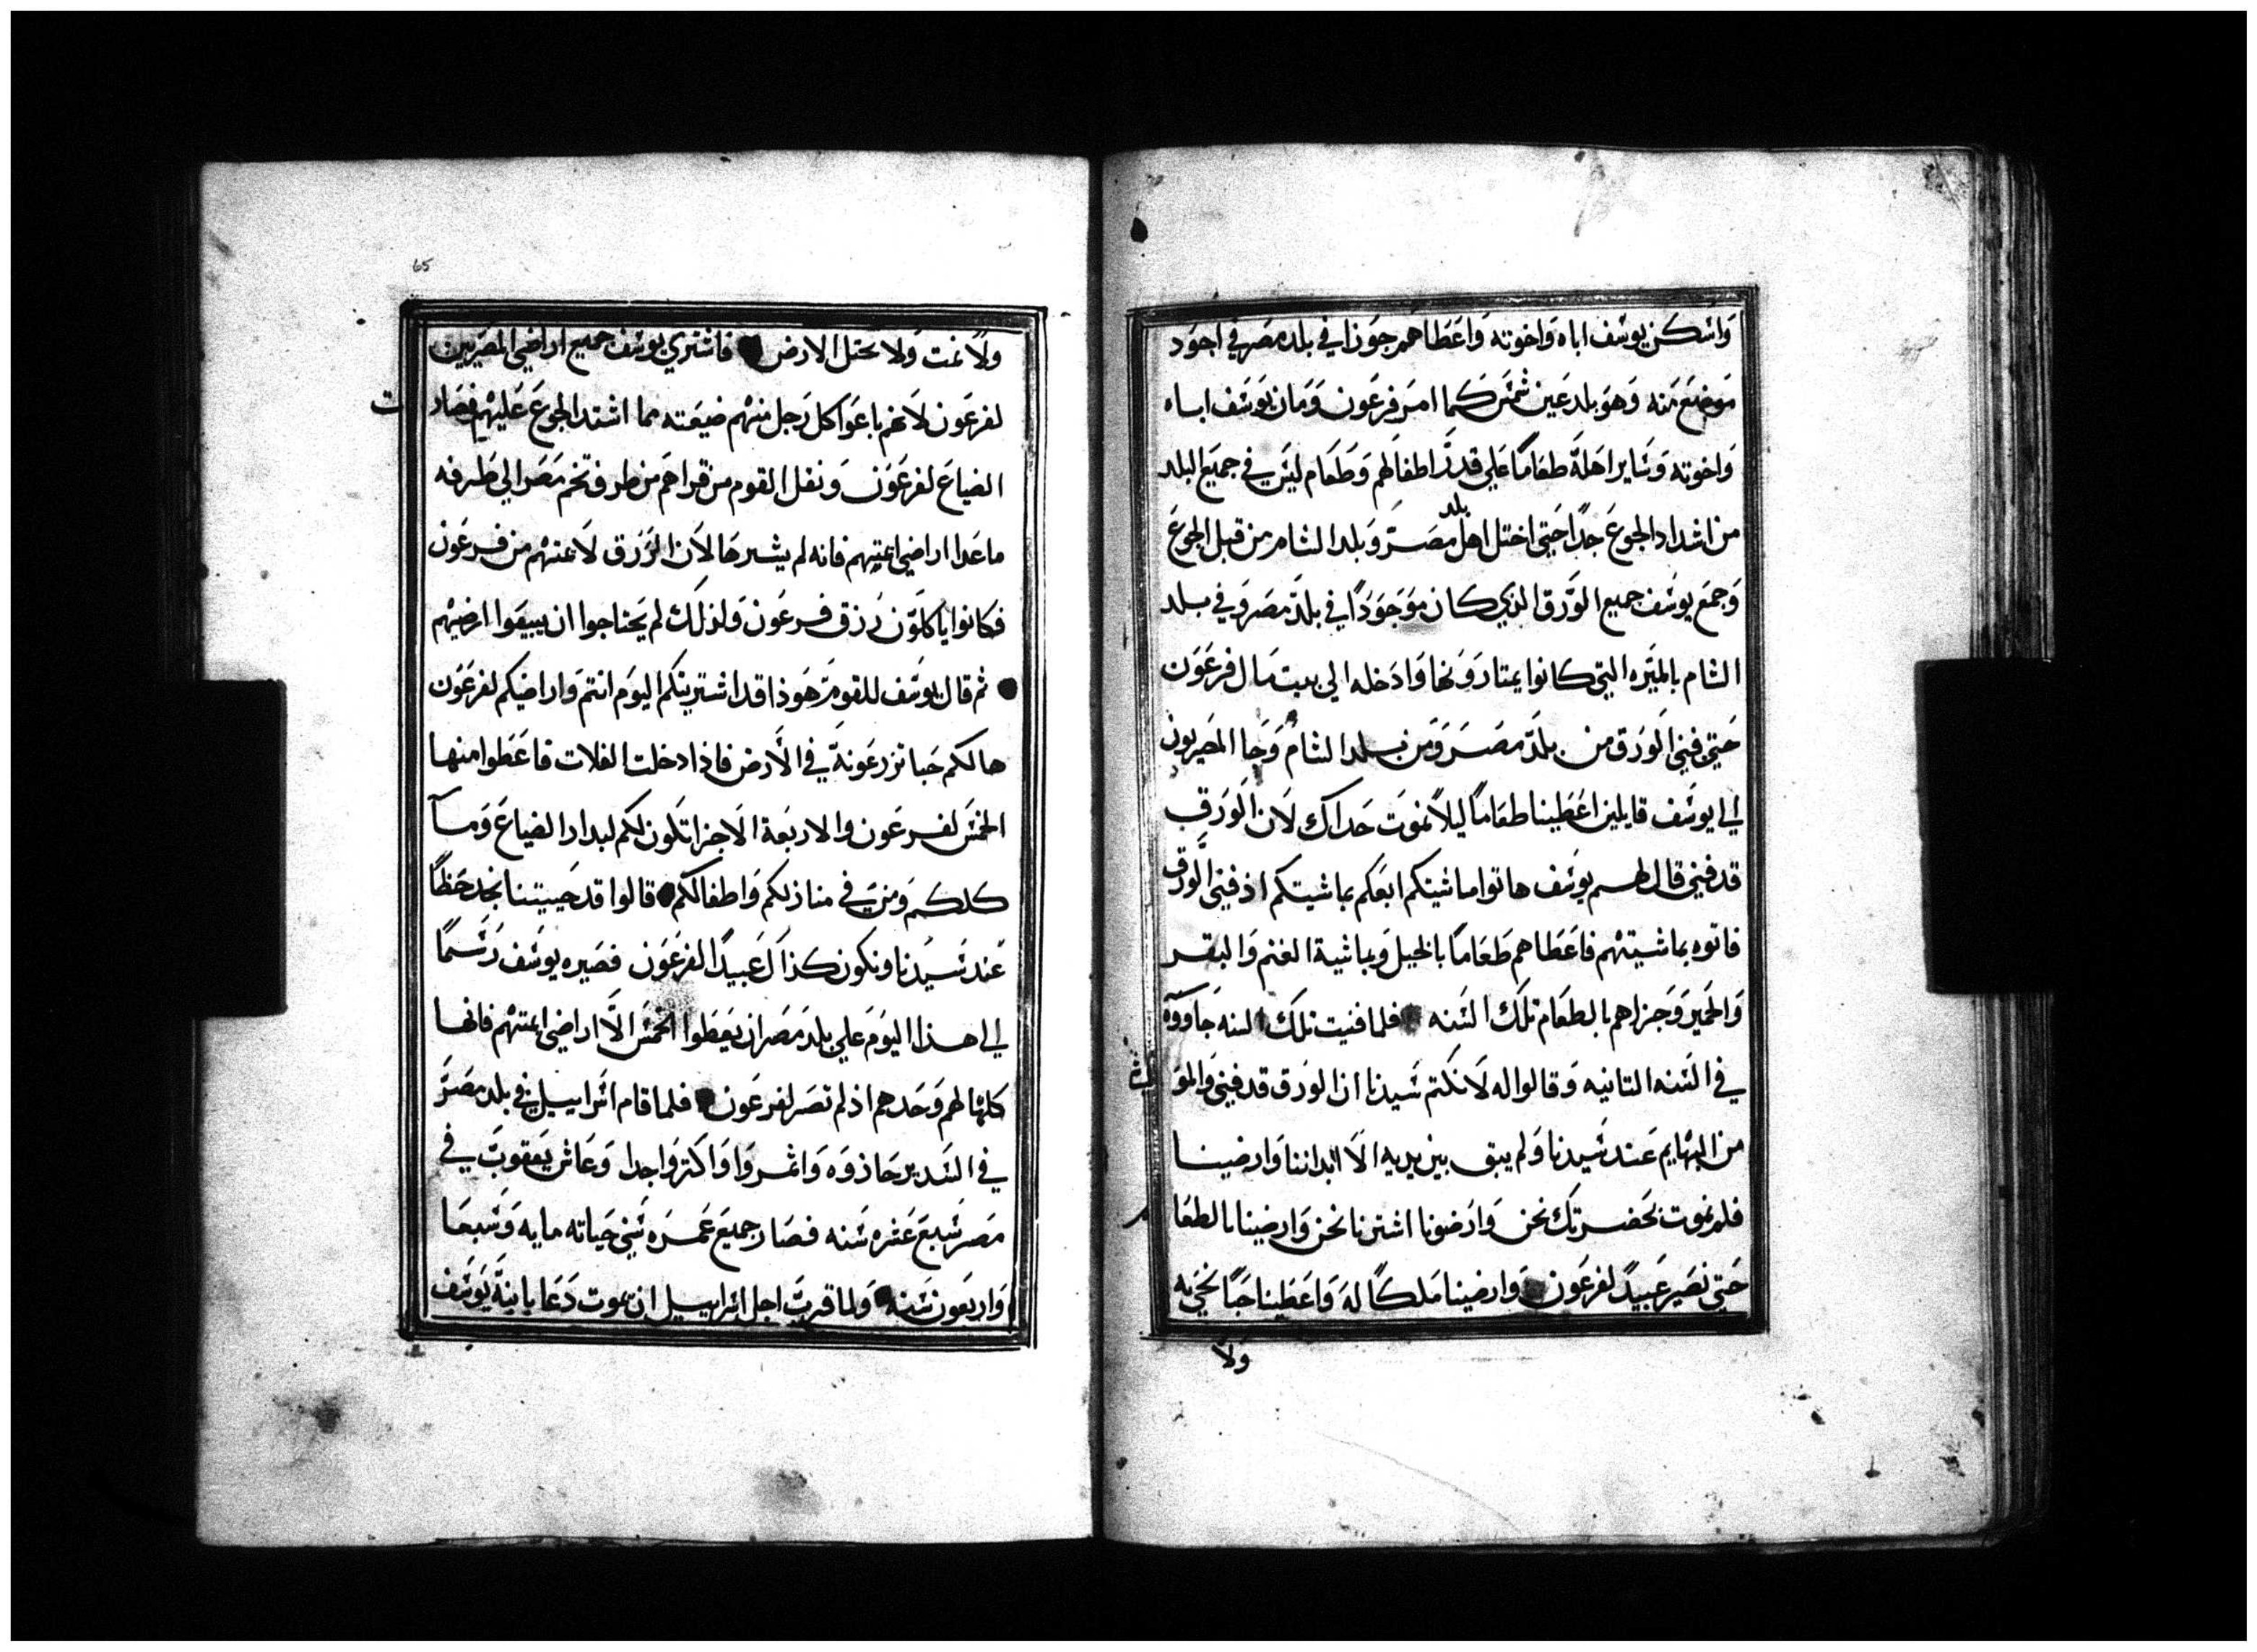 واسكن يوسف اباه واخوته واعطاهم جوزا في بلد مصر في اجود
موضع منه وهو بلد عين شمس كما امر فرعون ومان يوسف اباه
واخوته وساير اهله طعاما علي قدر اطفالهم وطعام ليس في جميع البلد
من اشداد الجوع جدا حتي اختل اهل بلد مصر وبلد الشام من قبل الجوع
وجمع يوسف جميع الورق الذي كان موجودا في بلد مصر وفي بلد
الشام بالميره التي كانوا يمتارونها وادخله الي بيت مال فرعون
حتي فني الورق من بلد مصر ومن بلد الشام وجا المصريون
الي يوسف قايلين اعطينا طعاما ليلا نموت حداك لان الورق
قد فني قال لهم يوسف هاتوا ماشيتكم ابعكم بماشيتكم اذ فني الورق
فاتوه بماشيتهم فاعطاهم طعاما بالخيل وبماشية الغنم والبقر
والحمير وجزاهم بالطعام تلك السنه فلما فنيت تلك السنه جاووه
في السنه التانيه وقالوا له لا نكتم سيدنا ان الورق قد فني والمواشي
من البهايم عند سيدنا ولم يبق بين يديه الا ابداننا وارضينا
فلم نموت بحضرتك نحن وارضونا اشترنا نحن وارضينا بالطعام
حتي نصير عبيدا لفرعون وارضينا ملكا له واعطينا حبا نحيي به
ولا
65
ولا نمت ولا تختل الارض فاشتري يوسف جميع اراضي المصريين
لفرعون لانهم باعوا كل رجل منهم ضيعته مما اشتد الجوع عليهم فصارت
الضياع لفرعون ونقل القوم من قراهم من طرف تخم مصر الي طرفه
ما عدا اراضي ايمتهم فانه لم يشريها لان الرزق لايمتهم من فرعون
فكانوا ياكلون رزق فرعون ولذلك لم يحتاجوا ان يبيعوا ارضيهم
ثم قال يوسف للقوم هوذا قد اشتريتكم اليوم انتم واراضيكم لفرعون
ها لكم حبا تزرعونه في الارض فاذا دخلت الغلات فاعطوا منها
الخمس لفرعون والاربعة الاجزا تكون لكم لبدار الضياع وما
كلكم ومن في منازلكم واطفالكم قالوا قد حييتنا نجد حظا
عند سيدنا ونكون كذاك عبيدا لفرعون فصيره يوسف رسما
الي هذا اليوم علي بلد مصر ان يعطوا الخمس الا اراضي ايمتهم فانها
كلها لهم وحدهم اذ لم تصر لفرعون فلما قام اسراييل في بلد مصر
في السدير حاذوه واثمروا واكثروا جدا وعاش يعقوب في
مصر سبع عشره سنه فصار جميع عمره سني حياته مايه وسبعا
واربعون سنه ولما قربت اجل اسراييل ان يموت دعا بابنه يوسف